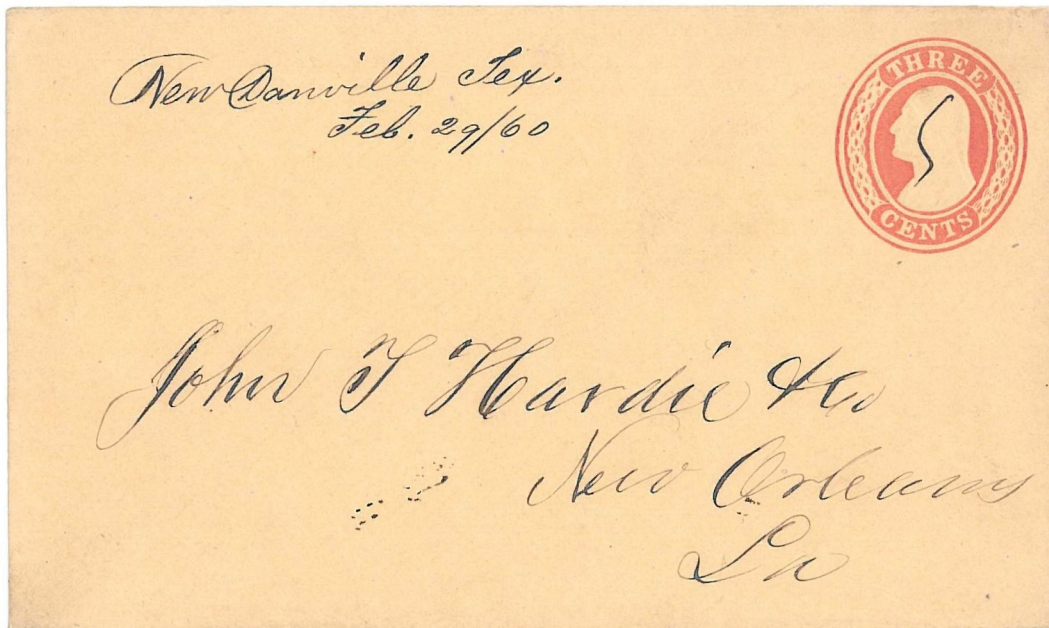 New Danville Tex.
Feb. 29/60
THREE
CENTS
John T Hardie & Co
New Orleans
La